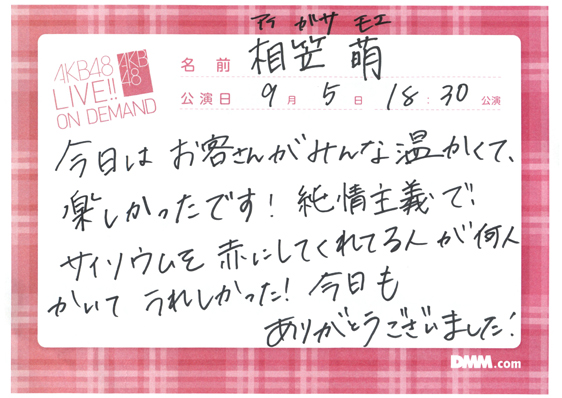 アイ ガサ モエ
AKB48
LIVE!!
ON DEMAND
AKB
48
名前 相笠 萌
公演日 9月 5日 18:30 公演
今日は お客さんがみんな温かくて、
楽しかったです! 純情主義で
サイソウムを 赤にしてくれてる人が何人
かいて うれしかった! 今日も
ありがとうございました!
DMM.com